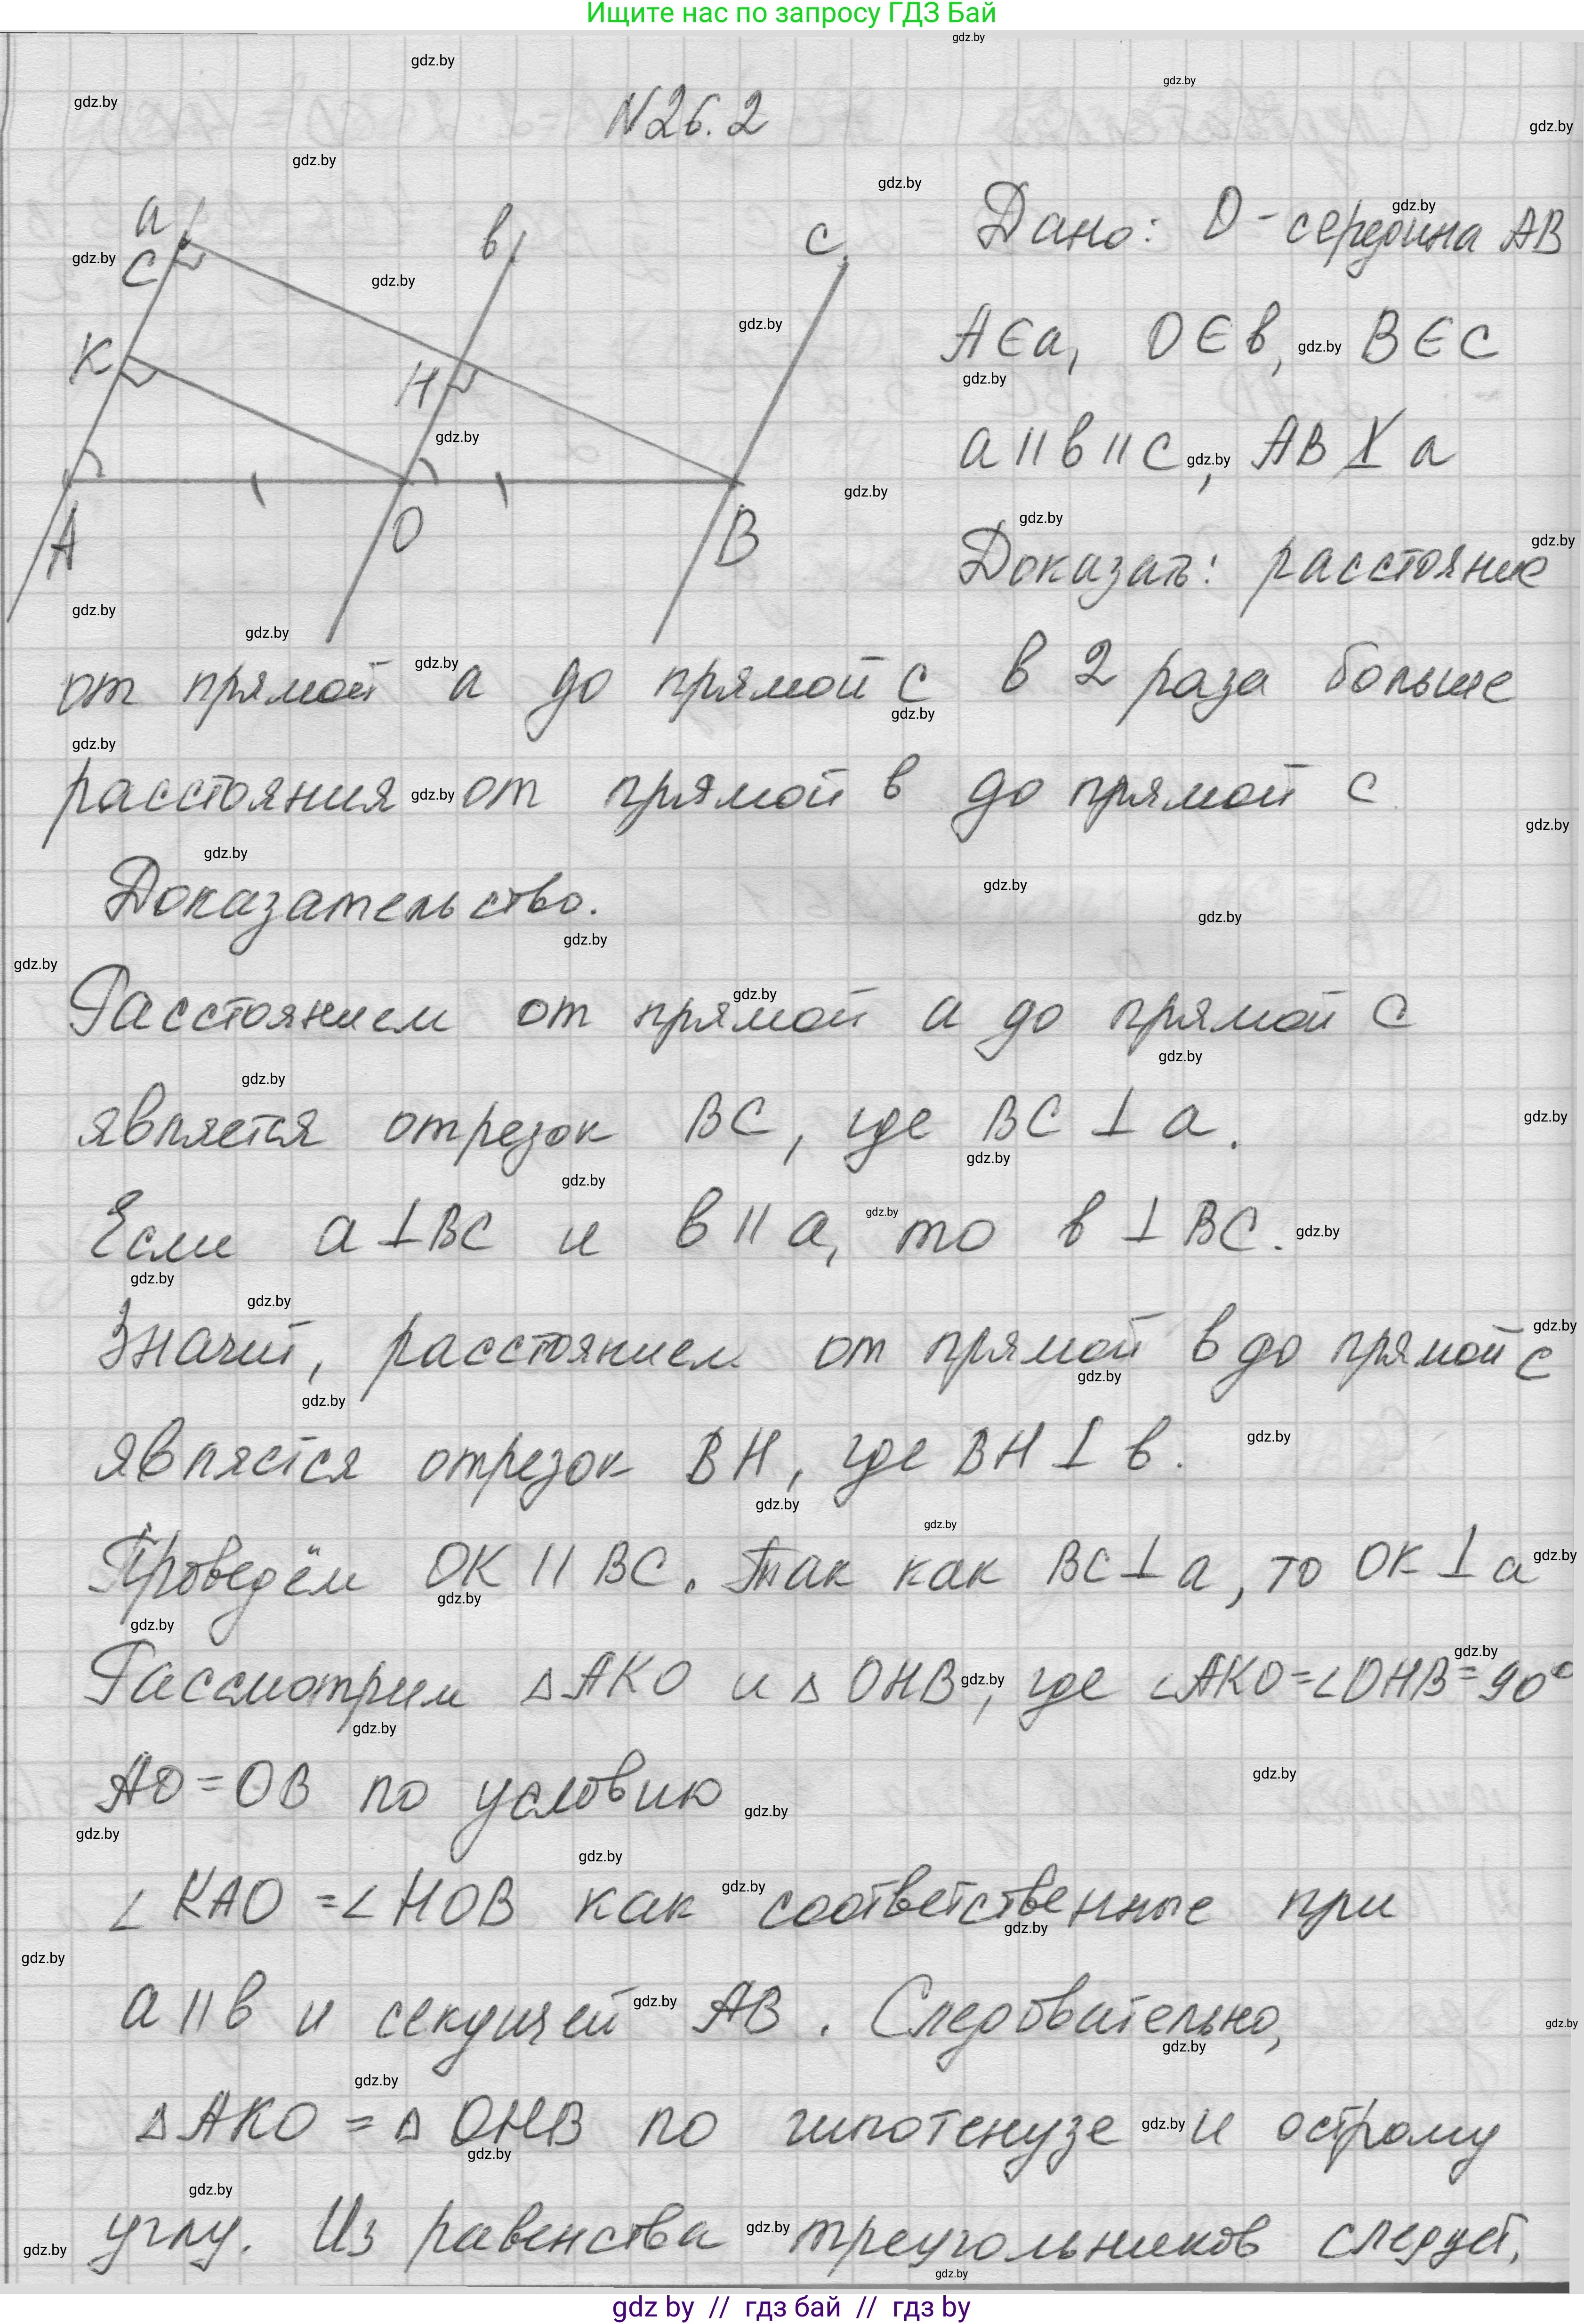 Ищите нас по запросу ГДЗ Бай
N26.2
a
C
K
A
в
H
O
c
B
Дано: O - середина AB
A∈a, O∈в, B∈c
a॥в॥c, AB⊥̸a
Доказать: расстояние
от прямой a до прямой c в 2 раза больше
расстояния от прямой в до прямой c
Доказательство.
Расстоянием от прямой a до прямой c
является отрезок BC, где BC⊥a.
Если a⊥BC и в॥a, то в⊥BC.
Значит, расстоянием от прямой в до прямой c
является отрезок BH, где BH⊥в.
Проведём OK॥BC. Так как BC⊥a, то OK⊥a
Рассмотрим ΔAKO и ΔOHB, где ∠AKO=∠OHB=90°
AO=OB по условию
∠KAO=∠HOB как соответственные при
a॥в и секущей AB. Следовательно,
ΔAKO=ΔOHB по гипотенузе и острому
углу. Из равенства треугольников следует,
gdz by // гдз бай // гдз by